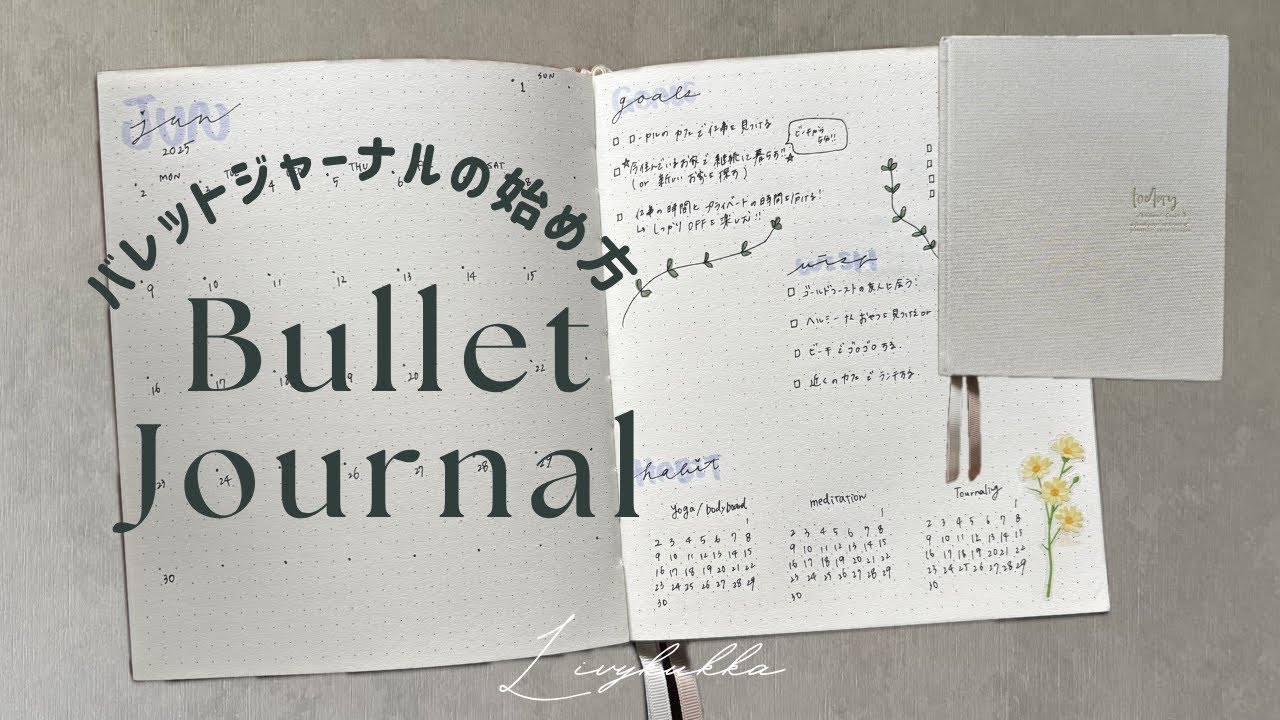 バレットジャーナルの始め方
Bullet
Journal
Livykukka
JUN
jun
2025
MON
THU
SAT
SUN
1
2
4
5
6
9
10
11
12
13
14
15
16
17
18
20
22
23
24
26
27
28
29
30
GOALS
goals
ビーチから
仕事の時間とプライベートの時間を分ける!
しっかりOFFを楽しむ!!
WISH
wish
ゴールドコーストの友人と会う!
ヘルシーなおやつを見つける or
ビーチでゴロゴロする.
近くのカフェでランチする
HABIT
habit
yoga/bodyboard
1
2 3 4 5 6 7 8
9 10 11 12 13 14 15
16 17 18 19 20 21 22
23 24 25 26 27 28 29
30
meditation
1
2 3 4 5 6 7 8
9 10 11 12 13 14 15
16 17 18 19 20 21 22
23 24 25 26 27 28 29
30
Journaling
1
2 3 4 5 6 7 8
9 10 11 12 13 14 15
16 17 18 19 20 21 22
23 24 25 26 27 28 29
30
today